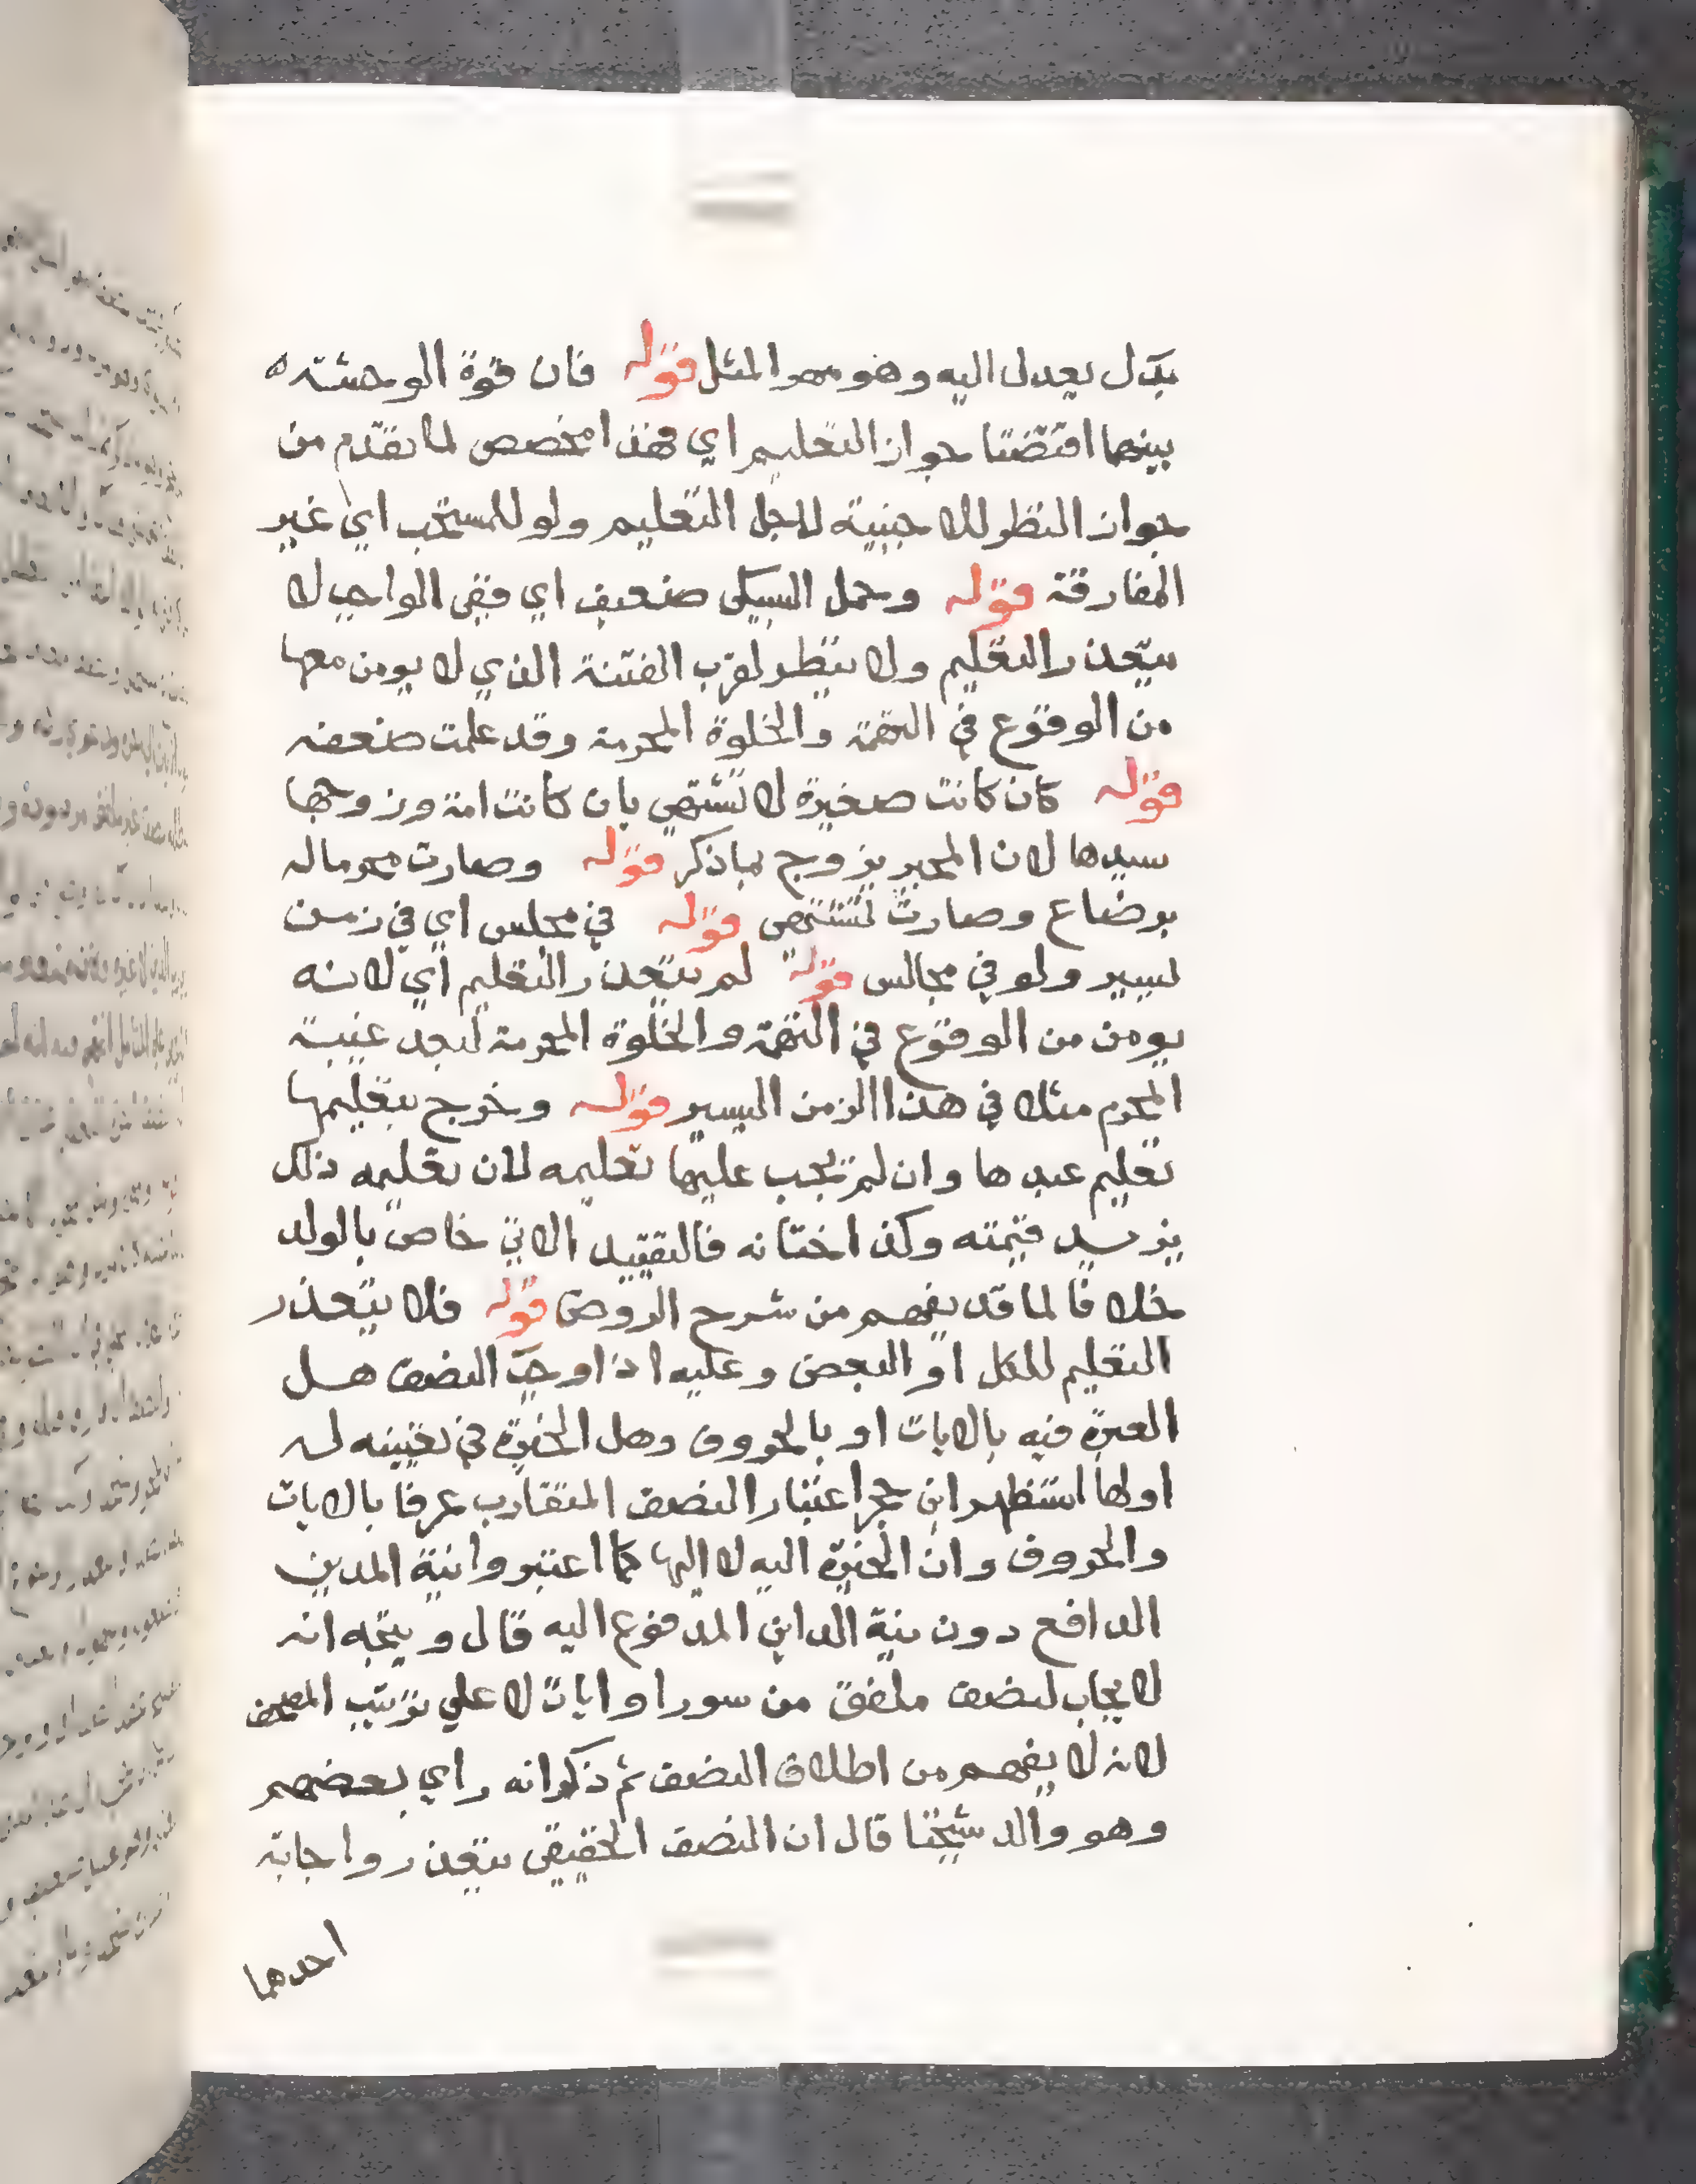 بدل يعدل اليه وهو مهر المثل قوله فان قوة الوحشته
بينهما اقتضتا جواز التعليم اي فهذا مخصص لما تقدم من
جواز النظر للاجنبية لاجل التعليم ولو للمستحب اي غير
المفارقة قوله وحمل السبكي ضعيف اي ففي الواجب لا
يتعذر التعليم ولا ينظر لقرب الفتنة الذي لا يومن معها
من الوقوع في التهمة والخلوة المحرمة وقد علمت ضعفه
قوله كان كانت صغيرة لا تشتهي بان كانت امة وزوجها
سيدها لان المجبر يزوج بما ذكر قوله وصارت محرما له
برضاع وصارت تشتهي قوله في مجلس اي في زمن
يسير ولو في مجالس قوله لم يتعذر التعليم اي لانه
يومن من الوقوع في التهمة والخلوة المحرمة لبعد غيبة
المحرم مثلا في هذا الزمن اليسير قوله وخرج بتعليمها
تعليم عبدها وان لم يجب عليها تعليمه لان تعليمه ذلك
يزيد قيمته وكذا ختانه فالتقييد الاتي خاص بالولد
خلافا لما قد يفهم من شرح الروض قوله فلا يتعذر
التعليم للكل او البعض وعليه اذا وجب النصف هل
العبرة فيه بالايات او بالحروف وهل الخيرة في تعيينه له
او لها استظهر ابن حجر اعتبار النصف المتقارب عرفا بالايات
والحروف وان الخيرة اليه لا اليها كما اعتبروا نية المدين
الدافع دون نية الداين المدفوع اليه قال ويتجه انه
لا يجاب لنصف ملفق من سور او ايات لا علي ترتيب المصحف
لانه لا يفهم من اطلاق النصف ثم ذكر انه راي بعضهم
وهو والد شيخنا قال ان النصف الحقيقي يتعذر واجابة
احدهما